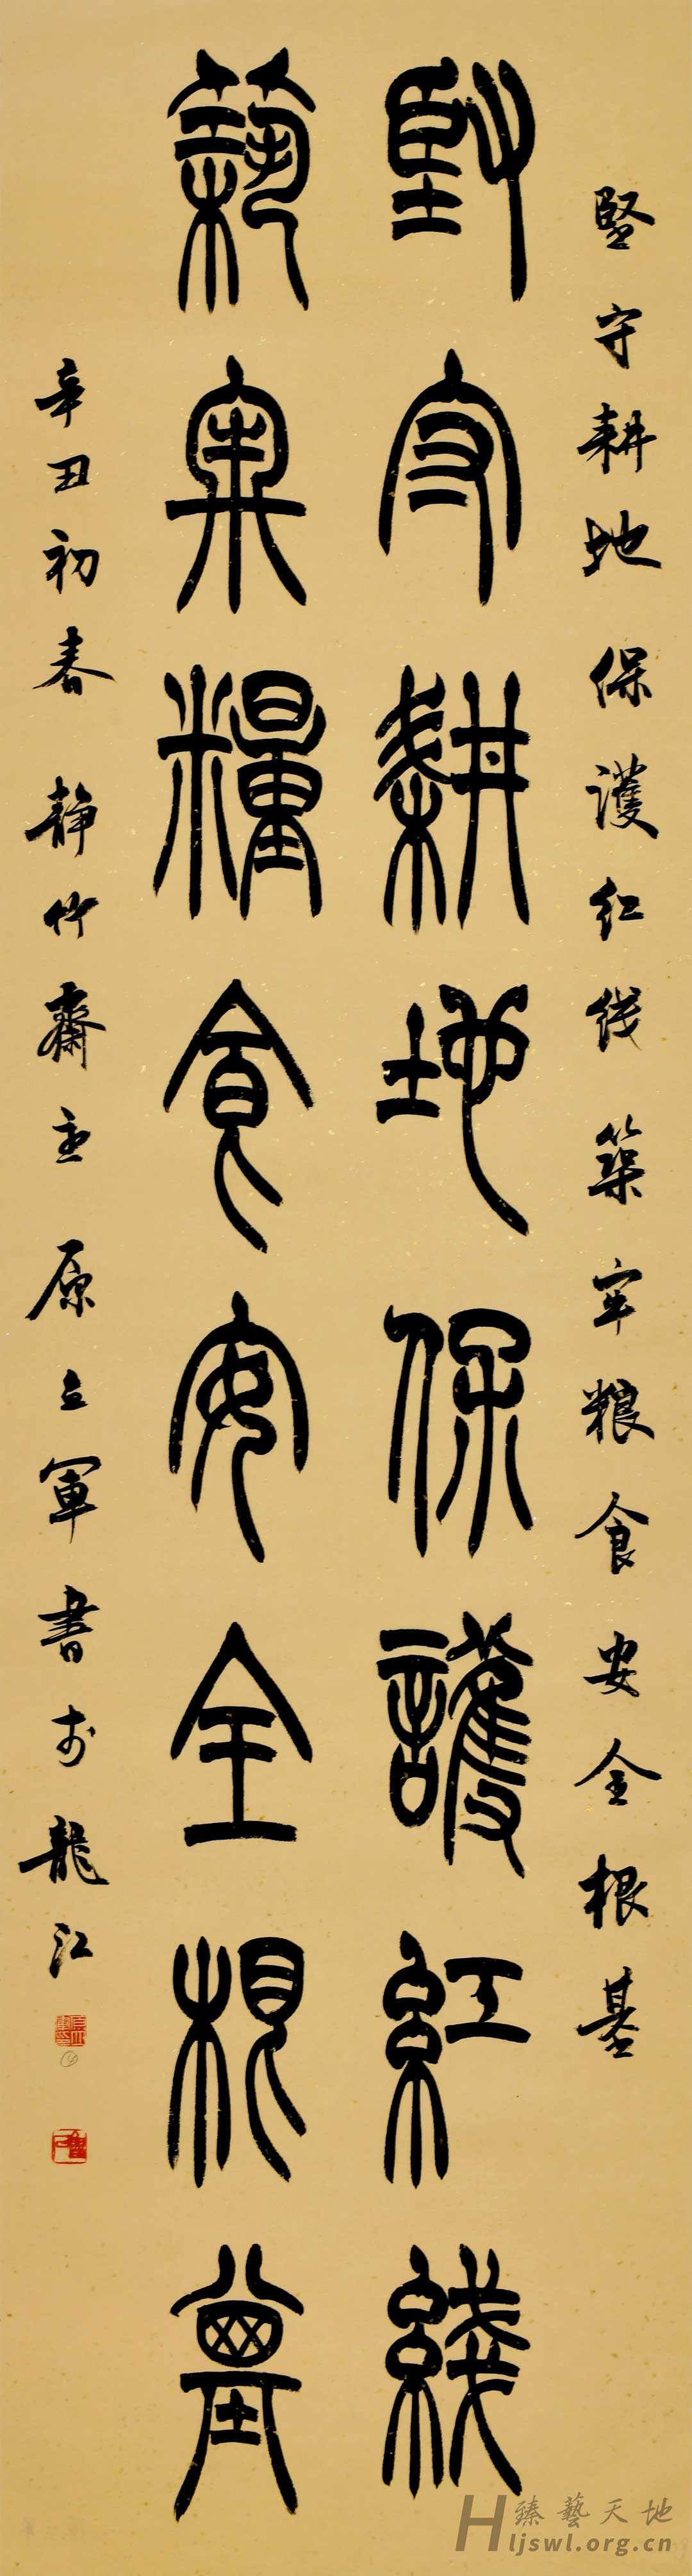 堅守耕地保護红线築牢粮食安全根基
堅守耕地保護紅綫
築牢糧食安全根基
辛丑初春靜竹齋主原立軍書於龍江
臻藝天地
Hljswl.org.cn